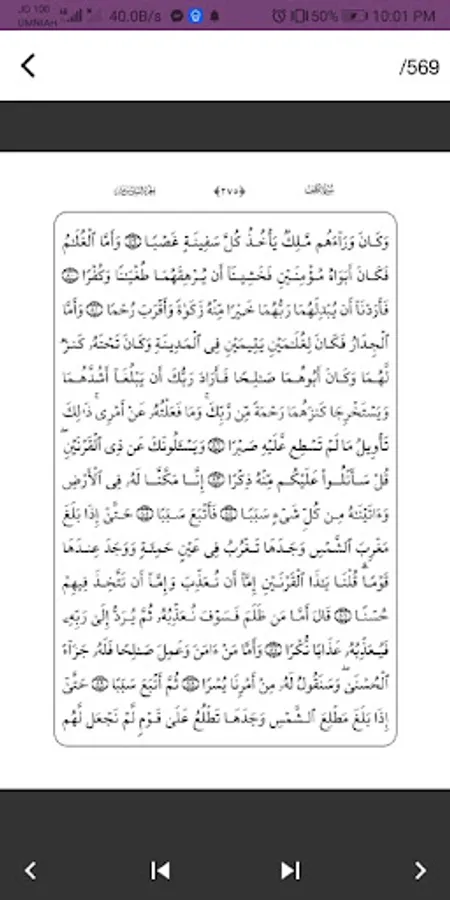 JO 100
UMNIAH
40.0B/s
50%
10:01 PM
/569
سورة الكهف
﴿٢٧٥﴾
وَكَانَ وَرَآءَهُم مَّلِكٌ يَأْخُذُ كُلَّ سَفِينَةٍ غَصْبًا وَأَمَّا ٱلْغُلَٰمُ
فَكَانَ أَبَوَاهُ مُؤْمِنَيْنِ فَخَشِينَآ أَن يُرْهِقَهُمَا طُغْيَٰنًا وَكُفْرًا
فَأَرَدْنَآ أَن يُبْدِلَهُمَا رَبُّهُمَا خَيْرًا مِّنْهُ زَكَوٰةً وَأَقْرَبَ رُحْمًا وَأَمَّا
ٱلْجِدَارُ فَكَانَ لِغُلَٰمَيْنِ يَتِيمَيْنِ فِى ٱلْمَدِينَةِ وَكَانَ تَحْتَهُۥ كَنزٌ
لَّهُمَا وَكَانَ أَبُوهُمَا صَٰلِحًا فَأَرَادَ رَبُّكَ أَن يَبْلُغَآ أَشُدَّهُمَا
وَيَسْتَخْرِجَا كَنزَهُمَا رَحْمَةً مِّن رَّبِّكَ ۚ وَمَا فَعَلْتُهُۥ عَنْ أَمْرِى ۚ ذَٰلِكَ
تَأْوِيلُ مَا لَمْ تَسْطِع عَّلَيْهِ صَبْرًا وَيَسْـَٔلُونَكَ عَن ذِى ٱلْقَرْنَيْنِ ۖ
قُلْ سَأَتْلُوا۟ عَلَيْكُم مِّنْهُ ذِكْرًا إِنَّا مَكَّنَّا لَهُۥ فِى ٱلْأَرْضِ
وَءَاتَيْنَٰهُ مِن كُلِّ شَىْءٍ سَبَبًا فَأَتْبَعَ سَبَبًا حَتَّىٰٓ إِذَا بَلَغَ
مَغْرِبَ ٱلشَّمْسِ وَجَدَهَا تَغْرُبُ فِى عَيْنٍ حَمِئَةٍ وَوَجَدَ عِندَهَا
قَوْمًا ۗ قُلْنَا يَٰذَا ٱلْقَرْنَيْنِ إِمَّآ أَن تُعَذِّبَ وَإِمَّآ أَن تَتَّخِذَ فِيهِمْ
حُسْنًا قَالَ أَمَّا مَن ظَلَمَ فَسَوْفَ نُعَذِّبُهُۥ ثُمَّ يُرَدُّ إِلَىٰ رَبِّهِۦ
فَيُعَذِّبُهُۥ عَذَابًا نُّكْرًا وَأَمَّا مَنْ ءَامَنَ وَعَمِلَ صَٰلِحًا فَلَهُۥ جَزَآءً
ٱلْحُسْنَىٰ ۖ وَسَنَقُولُ لَهُۥ مِنْ أَمْرِنَا يُسْرًا ثُمَّ أَتْبَعَ سَبَبًا حَتَّىٰٓ
إِذَا بَلَغَ مَطْلِعَ ٱلشَّمْسِ وَجَدَهَا تَطْلُعُ عَلَىٰ قَوْمٍ لَّمْ نَجْعَل لَّهُم